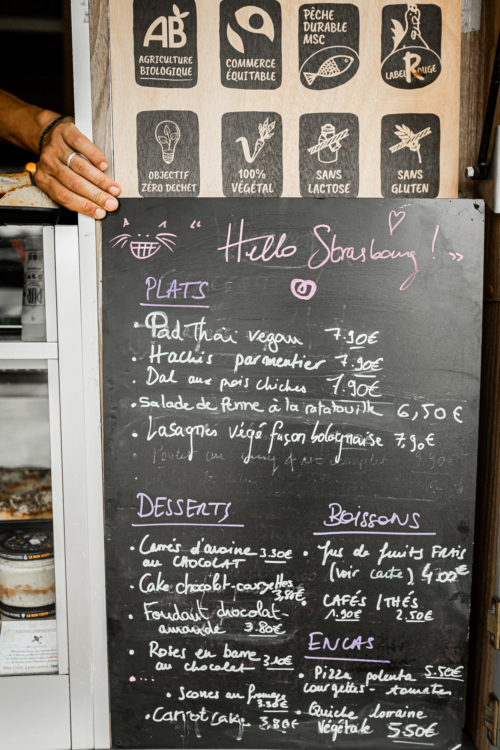 AB
AGRICULTURE
BIOLOGIQUE
COMMERCE
ÉQUITABLE
PÊCHE
DURABLE
MSC
LABEL ROUGE
OBJECTIF
ZÉRO DÉCHET
100%
VÉGÉTAL
SANS
LACTOSE
SANS
GLUTEN
" Hello Strasbourg ! "
PLATS
• Pad Thaï vegan 7.90€
• Hachis parmentier 7.90€
• Dal aux pois chiches 7.90€
• Salade de Penne à la ratatouille 6,50€
• Lasagnes végé façon bolognaise 7,90€
DESSERTS
• Carrés d'avoine 3.50€
au CHOCOLAT
• Cake chocolat-courgettes
3,80€
• Fondant chocolat-
amande 3.80€
• Roses en barre
au chocolat 3.10€
• Scones au fromage
3.50€
• Carrot Cake 3,80€
BOISSONS
• Jus de fruits FRAIS
(voir carte) 4.00€
• CAFÉS / THÉS
1.90€ 2.50€
ENCAS
• Pizza polenta 5.50€
courgettes - tomates
• Quiche lorraine
Végétale 5.50€